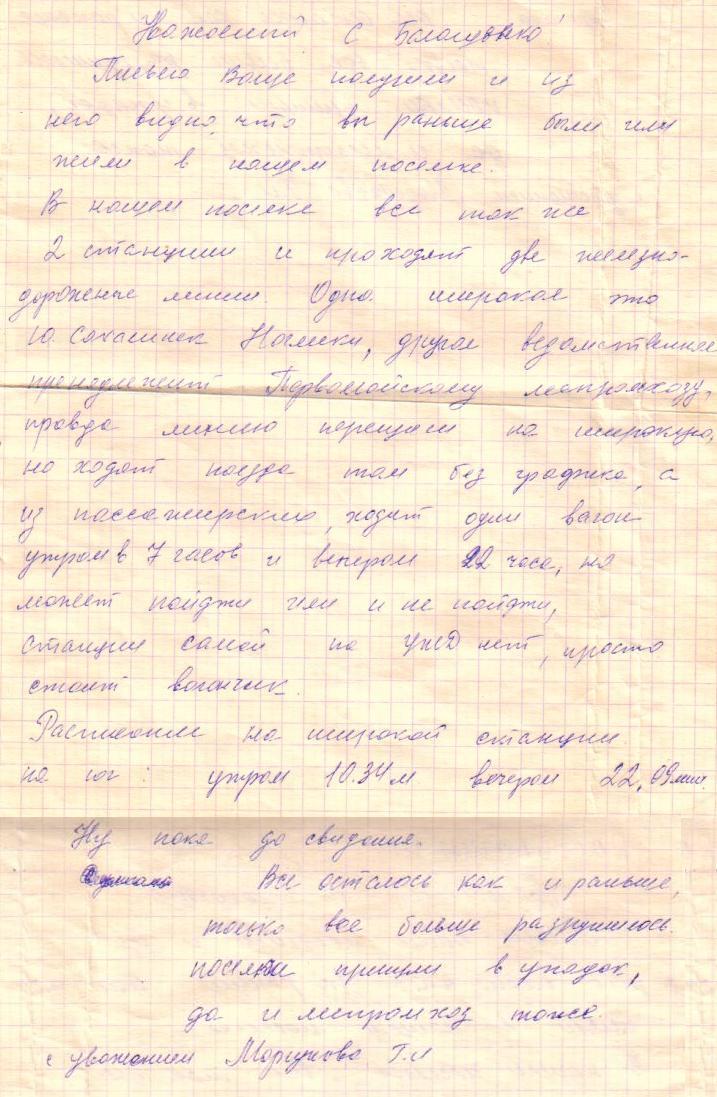 Уважаемый С Балашенко!
Письмо Ваше получили и из
него видно, что вы раньше были или
жили в нашем поселке.
В нашем поселке все так же
2 станции и проходят две железно-
дорожные линии. Одна широкая это
Ю. Сахалинск Ноглики, другая ведомственная
принадлежит Первомайскому леспромхозу,
правда линию перешили на широкую,
но ходят поезда там без графика, а
из пассажирских, ходит один вагон
утром в 7 часов и вечером 22 часа, но
может пойдти или и не пойдти,
станции самой по УЖД нет, просто
стоит вагончик.
Расписание на широкой станции
на юг: утром 10.34 м вечером 22.09 мин.
Ну пока до свидания.
Все осталось как и раньше,
только все больше разрушилось.
поселки пришли в упадок,
да и леспромхоз тоже.
с уважением Г.И